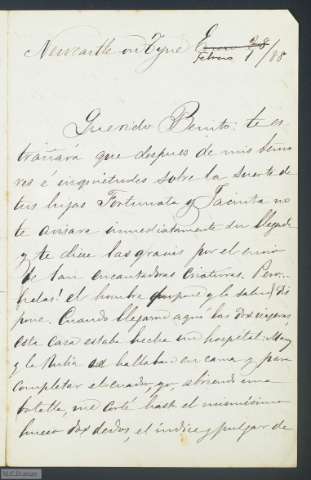 Newcastle on Tyne Enero 28
Febrero 1/88
Querido Benito: te es-
trañará que despues de mis temo
res é inquietudes sobre la suerte de
tus hijas Fortunata y Jacinta no
te avisara inmediatamente su llegada
y te diese las gracias por el envio
de tan encantadoras criaturas. Pero
hélas! el hombre propone y la salud dis
pone. Cuando llegaron aquí las dos viajeras,
esta casa estaba hecha un hospital:
y la Rubia se hallaban en cama y para
completar el cuadro, yo, abriendo una
botella, me corté hast el mismísimo
hueso dos dedos, el índice y pulgar de